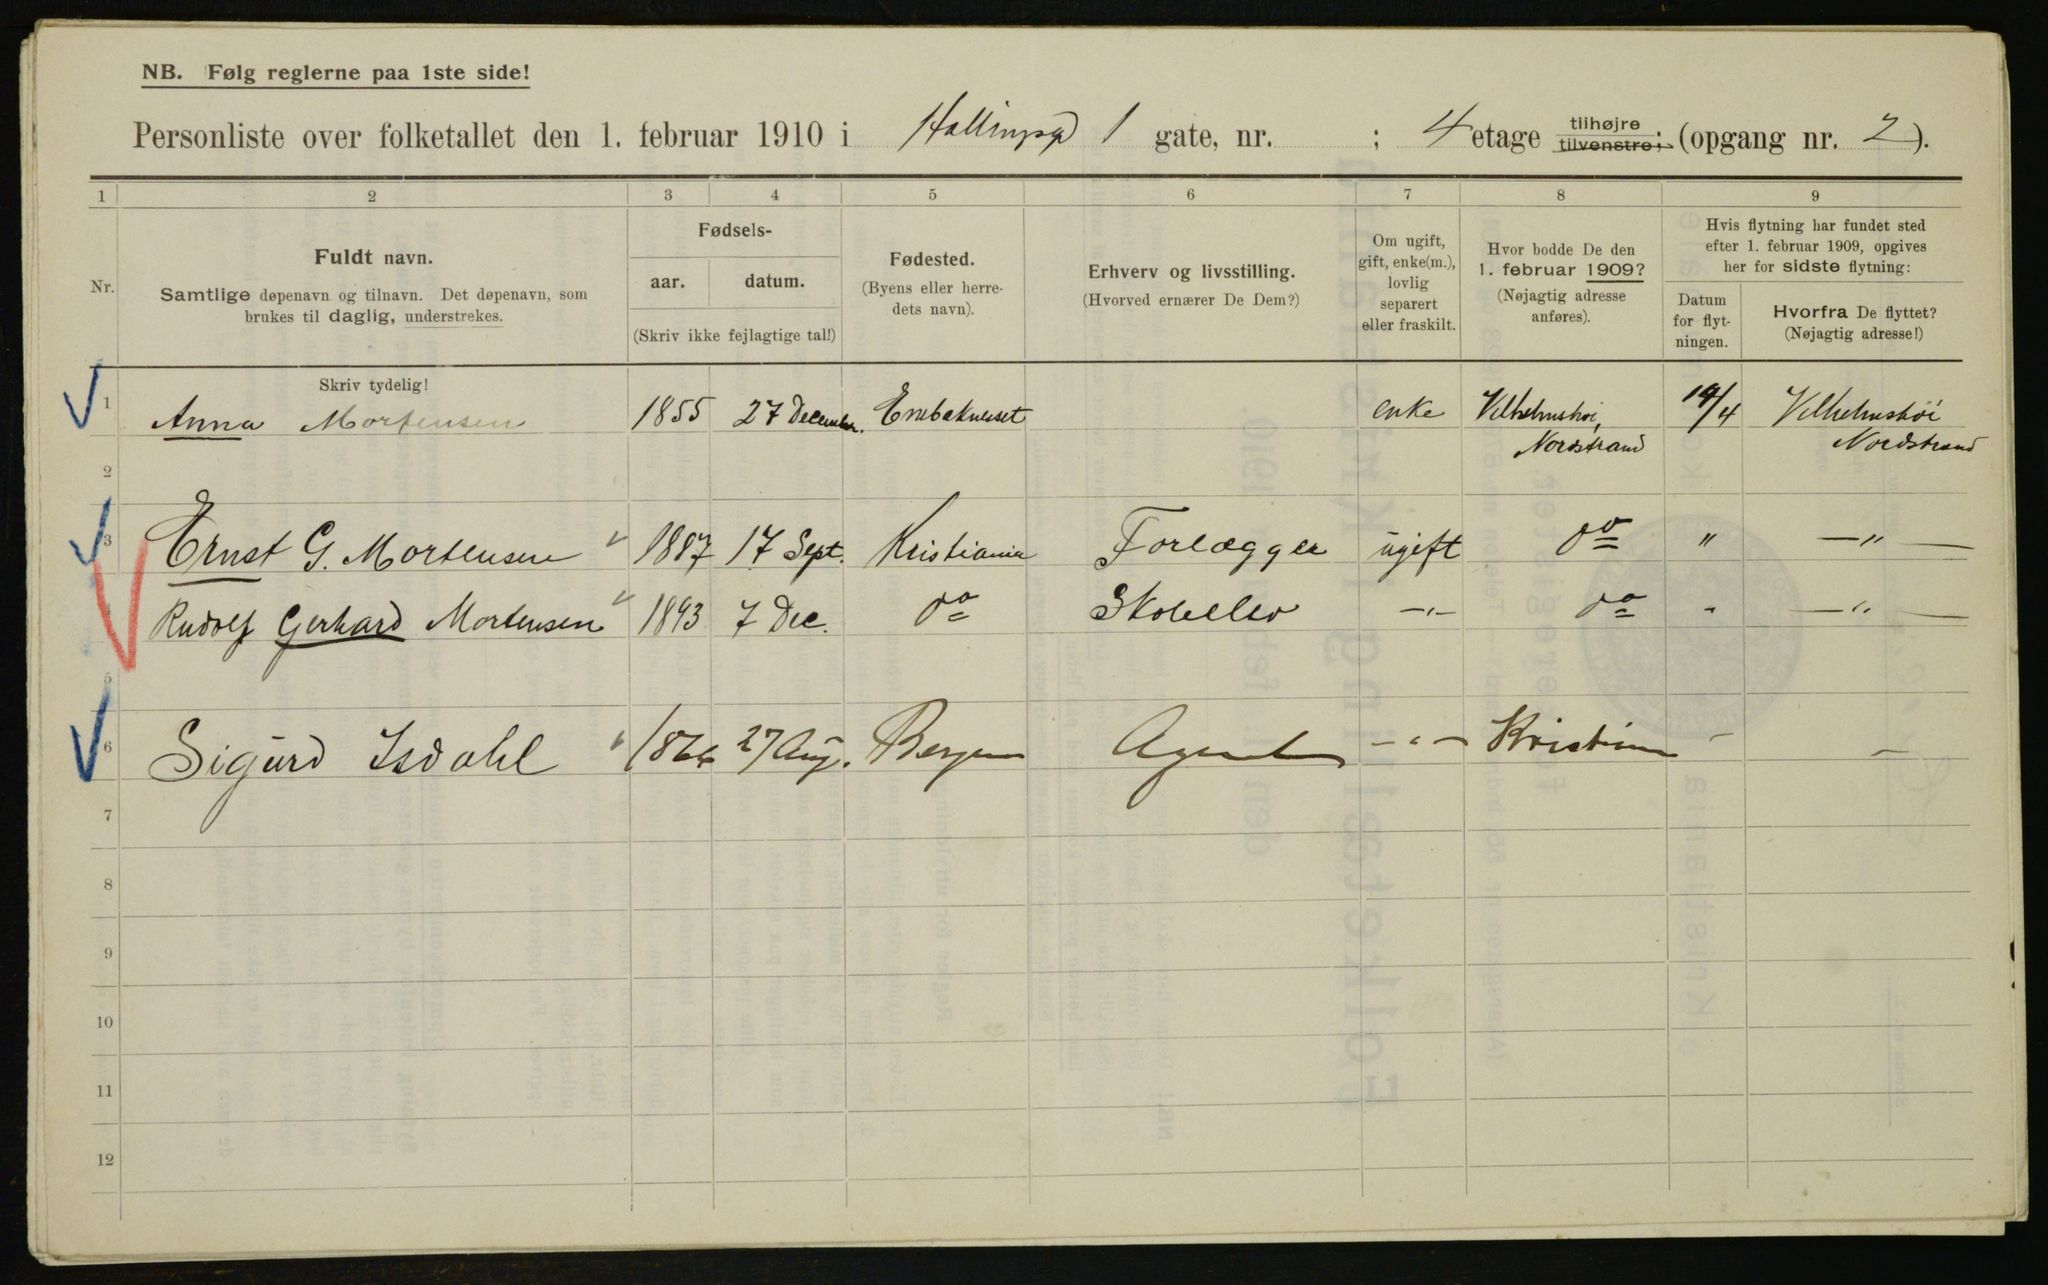 NB. Følg reglerne paa 1ste side!
Personliste over folketallet den 1. februar 1910 i Hallingsgd 1 gate, nr. ; 4 etage tilhøjre tilvenstre; (opgang nr. 2).
1 2 3 4 5 6 7 8 9
Nr.
Fuldt navn.
Samtlige døpenavn og tilnavn. Det døpenavn, som
brukes til daglig, understrekes.
Fødsels-
aar. datum.
(Skriv ikke fejlagtige tal!)
Fødested.
(Byens eller herre-
dets navn).
Erhverv og livsstilling.
(Hvorved ernærer De Dem?)
Om ugift,
gift, enke(m.),
lovlig
separert
eller fraskilt.
Hvor bodde De den
1. februar 1909?
(Nøjagtig adresse
anføres).
Hvis flytning har fundet sted
efter 1. februar 1909, opgives
her for sidste flytning:
Datum
for flyt-
ningen.
Hvorfra De flyttet?
(Nøjagtig adresse!)
Skriv tydelig!
1 Anna Mortensen 1855 27 December. enke Vilhelmshøi, 14/4 Vilhelmshøi
Nordstrand Nordstrand
2
3 Ernst G. Mortensen 1887 17 Sept. Kristiania Forlægger ugift do " —"—
4 Rudolf Gerhard Mortensen 1893 7 Dec. do Skoleelev —"— do " —"—
5
6 Sigurd Isdahl 1866 27 Aug. Bergen Agent —"— Kristiania - —
7
8
9
10
11
12